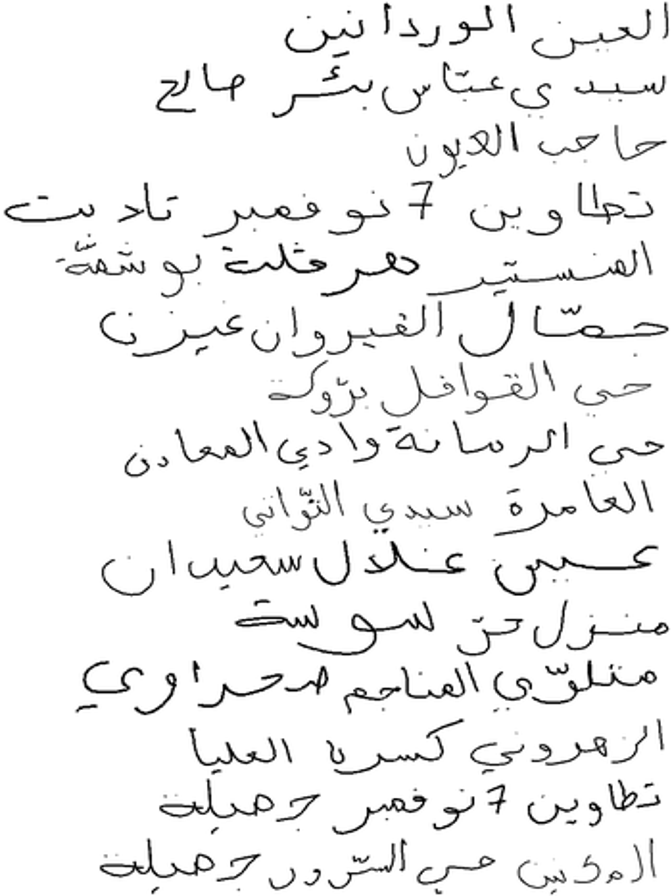 العين الوردانين
سيدي عبّاس بئر صالح
حاجب العيون
تطاوين 7 نوفمبر تلابت
المنستير هرقلة بوشمّة
جمّال القيروان غيزن
حي القوافل بزّوكة
حي الرمانة وادي المعادن
العامرة سيدي التّواتي
عين غلال سعيدان
منزل حرّ سوسة
متلوّي المناجم صحراوي
الزهروني كسرى العليا
تطاوين 7 نوفمبر جرصيلة
المكنين حي السّرور جرصيلة